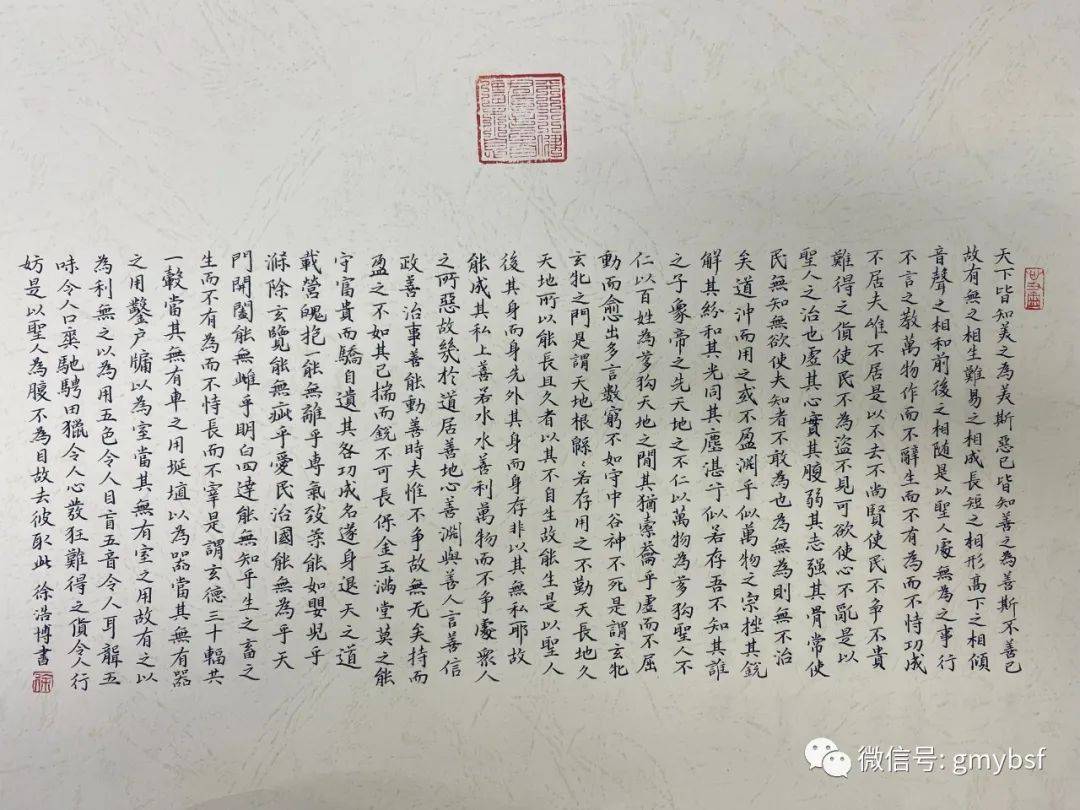 天下皆知美之為美斯惡已皆知善之為善斯不善已
故有無之相生難易之相成長短之相形高下之相傾
音聲之相和前後之相随是以聖人處無為之事行
不言之教萬物作而不辭生而不有為而不恃功成
不居夫唯不居是以不去不尚賢使民不争不貴
難得之貨使民不為盗不見可欲使心不亂是以
聖人之治也虚其心實其腹弱其志强其骨常使
民無知無欲使夫知者不敢為也為無為則無不治
矣道沖而用之或不盈渊乎似萬物之宗挫其銳
解其紛和其光同其塵湛兮似若存吾不知其誰
之子象帝之先天地之不仁以萬物為芻狗聖人不
仁以百姓為芻狗天地之間其猶橐籥乎虚而不屈
動而愈出多言數窮不如守中谷神不死是謂玄牝
玄牝之門是謂天地根緜〻若存用之不勤天長地久
天地所以能長且久者以其不自生故能生是以聖人
後其身而身先外其身而身存非以其無私耶故
能成其私上善若水水善利萬物而不争處衆人
之所惡故幾於道居善地心善渊與善人言善信
政善治事善能動善時夫惟不争故無尤矣持而
盈之不如其已揣而銳不可長保金玉滿堂莫之能
守富貴而驕自遺其各功成名遂身退天之道
載營魄抱一能無離乎專氣致柔能如嬰兒乎
滌除玄覽能無疵乎愛民治國能無為乎天
門開闔能無雌乎明白四達能無知乎生之畜之
生而不有為而不恃長而不宰是謂玄德三十輻共
一轂當其無有車之用埏埴以為器當其無有器
之用鑿户牖以為室當其無有室之用故有之以
為利無之以為用五色令人目盲五音令人耳聾五
味令人口爽馳騁田獵令人心發狂難得之貨令人行
妨是以聖人為腹不為目故去彼取此 徐浩博書
徐
微信号: gmybsf